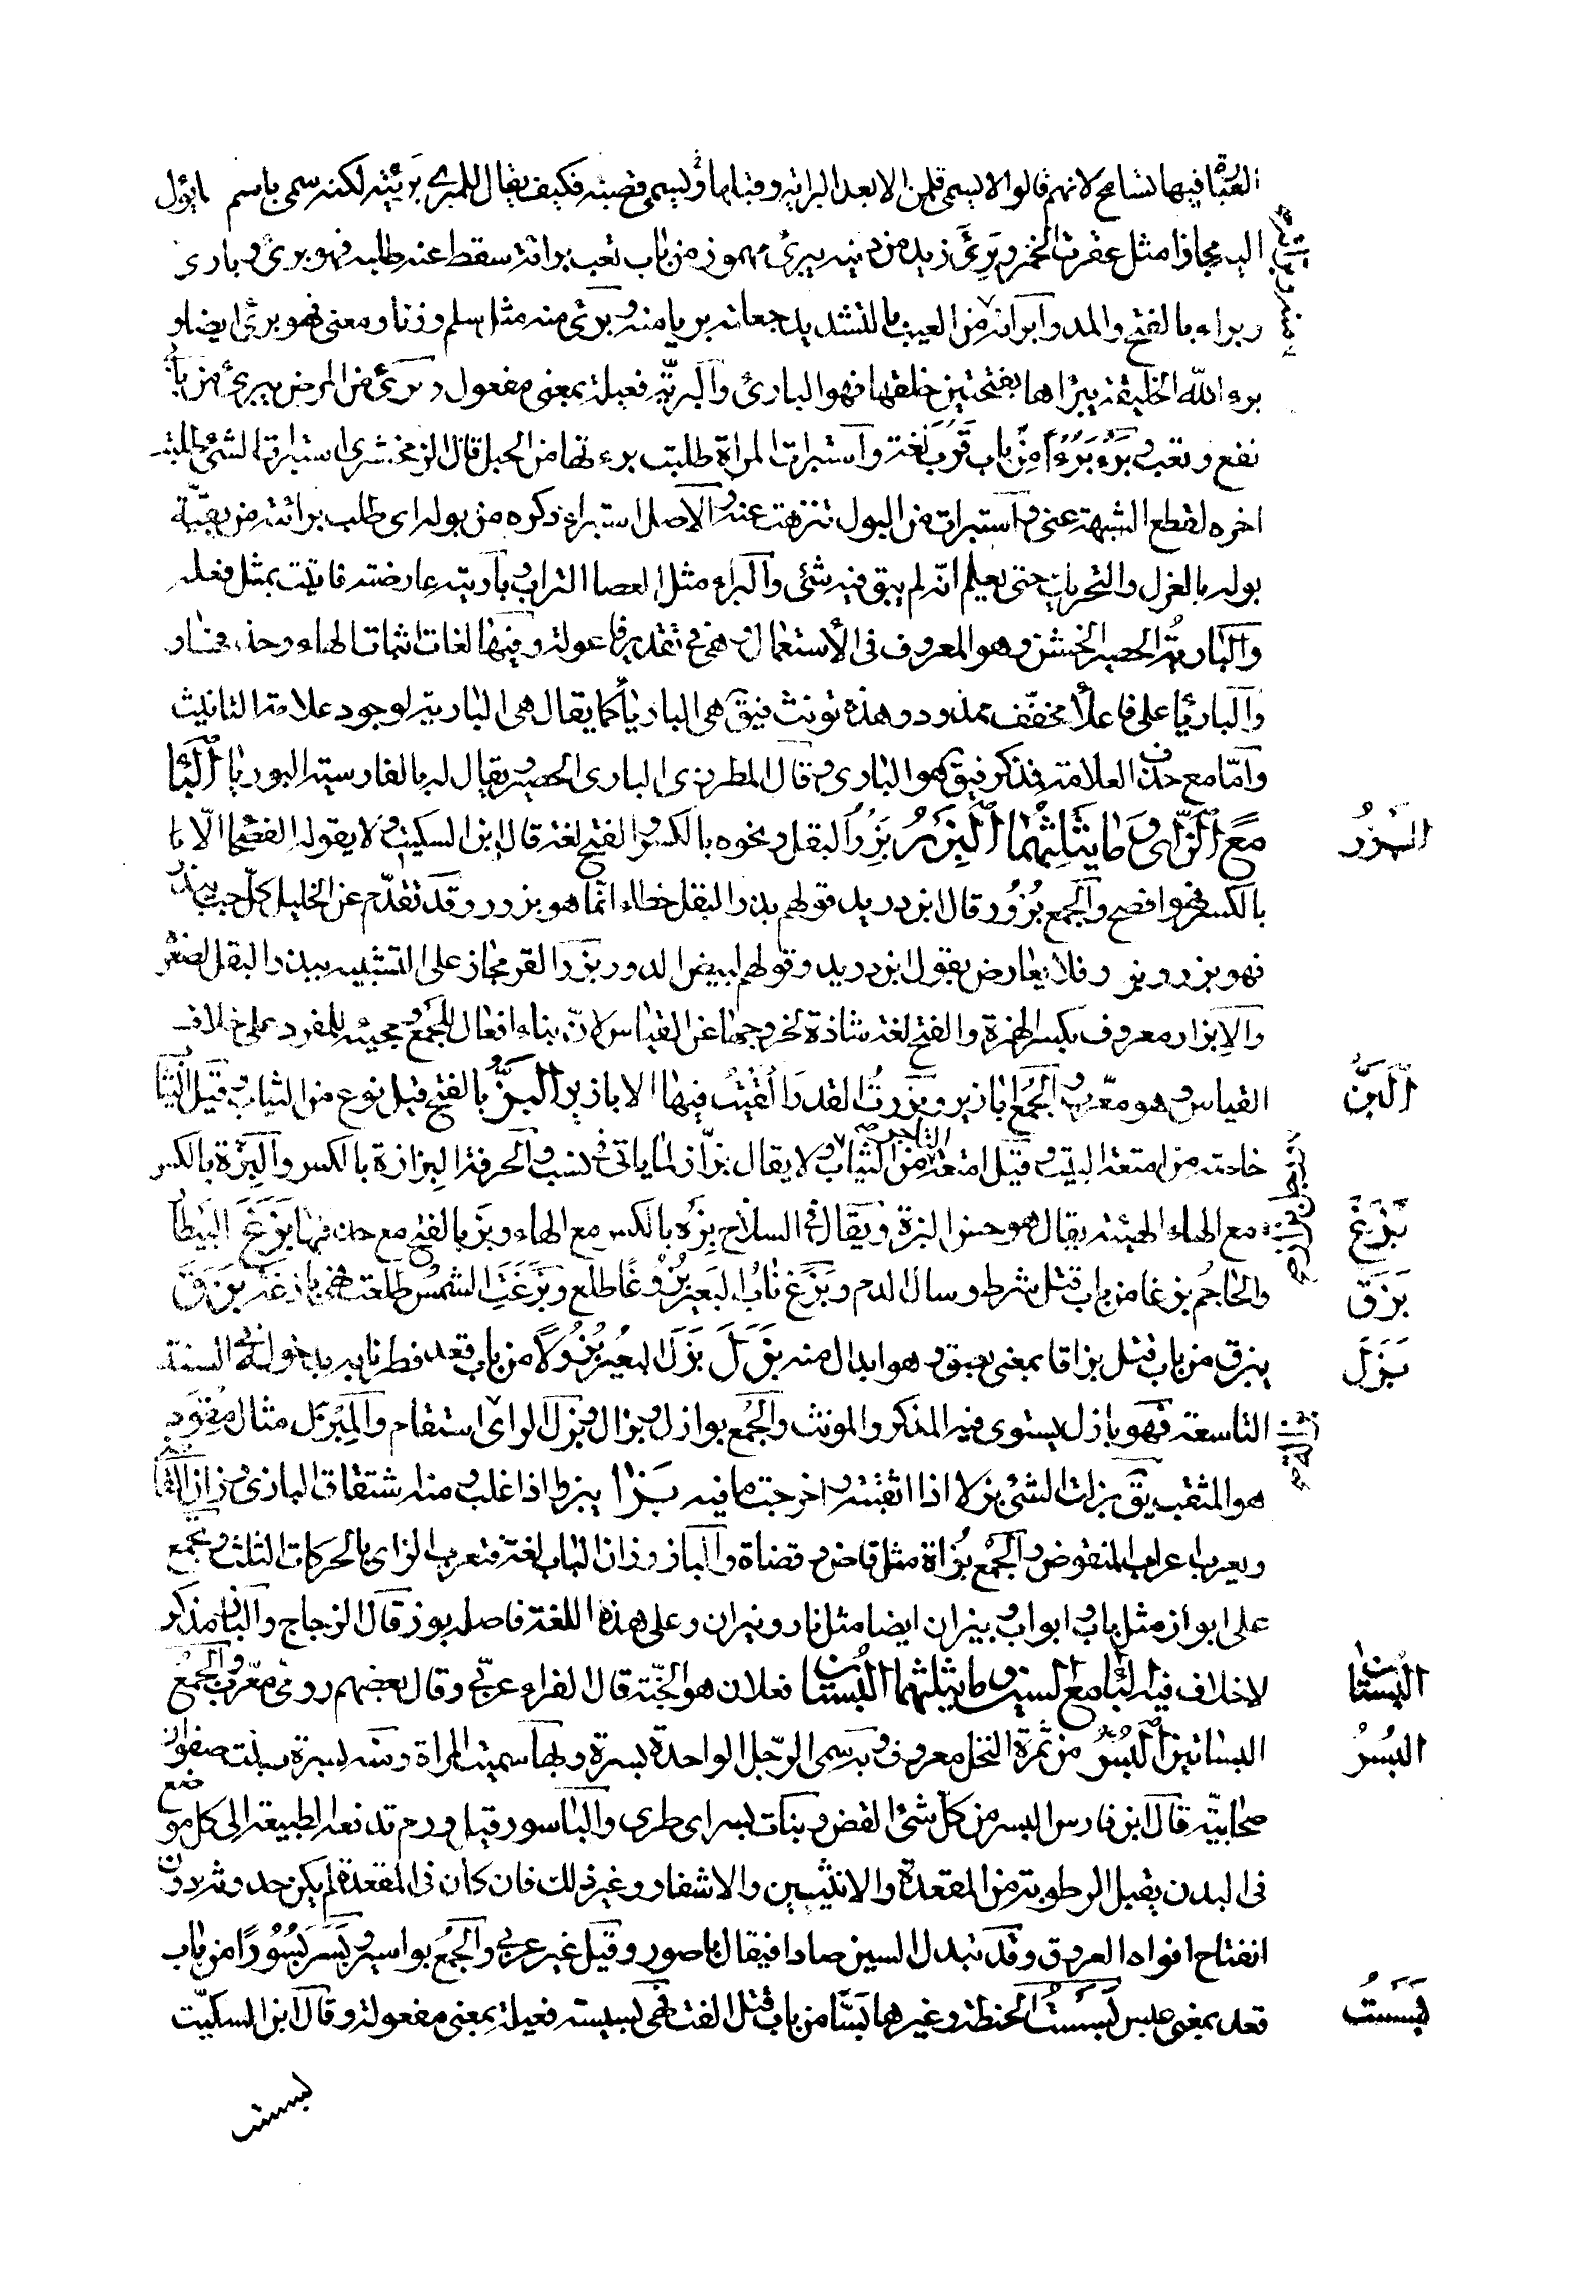 العبارة فيها تسامح لانهم قالوا لا يسمى قلمن الا بعد البراية وقبلها يسمى قصبة فكيف يقال للمبرى بريته لكنه سمى باسم مايؤل
اليه مجازا مثل عصرت الخمر وبرئ زيد من دينه يبرئ مهموز من باب تعب برائة سقط عنه طلبه فهو برئ وبارئ
وبراء بالفتح والمد وابراته من العيب بالتشديد جعلته بريا منه وبرئ منه مثل سلم وزنا ومعنى فهو برئ ايضا و
برء الله الخليقة يبرأها بفتحتين خلقها فهو البارئ والبريّة فعيلة بمعنى مفعول وبرئ من المرض يبرئ من باب
نفع وتعب وبرؤ برءا من باب قرب لغة واستبرات المراة طلبت برءتها من الحبل قال الزمخشرى استبرات الشئ طلبت
اخره لقطع الشبهة عنى واستبرات من البول تنزهت عنه والاصل استبراء ذكره من بوله اى طلب برائته من بقيّة
بوله بالغزل والتحريك حتى يعلم انّه لم يبق فيه شئ والبراء مثل العصا التراب وباريته عارضته فاتيت بمثل فعله
والبارية الحصير الخشن وهو المعروف فى الاستعمال وهى فى تقدير فاعولة وفيها لغات اثبات الهاء وحذفها و
والبارياء على فاعلاء مخفّف ممدود وهذه تونث فيق هى البارياء كما يقال هى البارية لوجود علامة التانيث
وامّا مع حذف العلامة فمذكر فيق هو البارى وقال المطرزى البارى الحصير ويقال له بالفارسية البوريا البا
مع الزاى وما يثلثهما البزر بزر البقل ونحوه بالكسر والفتح لغة قال ابن السكيت ولا يقوله الفصحا الّا با
بالكسر فهو افصح والجمع بزور قال ابن دريد قولهم بذر البقل خطاء انّما هو بزور وقد تقدّم عن الخليل كلّ حب يبذر
فهو بزر وبذر فلا يعارض بقول ابن دريد وقولهم لبيض الدود بزر القز مجاز على التشبيه ببذر البقل لصغر
والابزار معروف بكسر الهمزة والفتح لغة شاذة لخروجها عن القياس لانّ بناء افعال للجمع ومجيئه للمفرد على خلاف
القياس وهو معرّب والجمع ابازير وبزرت القدر القيت فيها الابازير البزّ بالفتح قيل نوع من الثياب وقيل الثيا
خاصة من امتعة البيت وقيل امتعة التاجر من الثياب ولا يقال بزّاز لما ياتى فى كسب والحرفة البزازة بالكسر والبزة بالكسر
مع الهاء الهيئة يقال هو حسن البزة ويقال فى السلاح بزه بالكسر مع الهاء وبز بالفتح مع حذفها بزغ البيطا
والحاجم بزغا من باب قتل شرط وسال الدم وبزغ ناب البعير بزوغا طلع وبزغت الشمس طلعت فهى بازغة بزق
يبزق من باب قتل بزاقا بمعنى بصق وهو ابدال منه بزل بزل البعير بزولا من باب قعد فطر نابه بدخوله فى السنة
التاسعة فهو بازل يستوى فيه المذكر والمونث والجمع بوازل وبزال وبزل الراى استقام والمبزل مثال مقود
هو المثقب يق بزلت الشئ بزلا اذا اثقبته واخرجت ما فيه بزا يبزوا اذا غلب ومنه اشتقاق البازى وزان القا
ويعرب اعراب المنقوص والجمع بزاة مثل قاض وقضاة والباز وزان الباب لغة فتعرب الزاى بالحركات الثلث ويجمع
على ابواز مثل باب وابواب وبيزان ايضا مثل نار ونيران وعلى هذه اللغة فاصله بوز قال الزجاج والباز مذكر
لاخلاف فيه البا مع السين وما يثلثهما البستان فعلان هو الجنّة قال الفراء عربى وقال بعضهم رومى معرّب والجمع
البساتين البسر من ثمرة النخل معروف وبه سمى الرّجل الواحدة بسرة وبها سميت المراة ومنه بسرة بنت صفوان
صحابيّة قال ابن فارس البسر من كلّ شئ الغض ونبات بسر اى طرى والباسور قيل ورم تدفعه الطبيعة الى كل موضع
فى البدن يقبل الرطوبة من المقعدة والانثيين والاشفار وغير ذلك فان كان فى المقعدة لم يكن حدوثه دون
انفتاح افواه العروق وقد تبدل السين صادا فيقال باصور وقيل غير عربى والجمع بواسير وبسر بسورا من باب
قعد بمعنى عبس بسست الحنطة وغيرها بسّا من باب قتل الفت فهى بسيسة فعيلة بمعنى مفعولة وقال ابن السكيّت
البزر
البزّ
بزغ
بزق
بزل
البستان
البسر
بسست
بسست